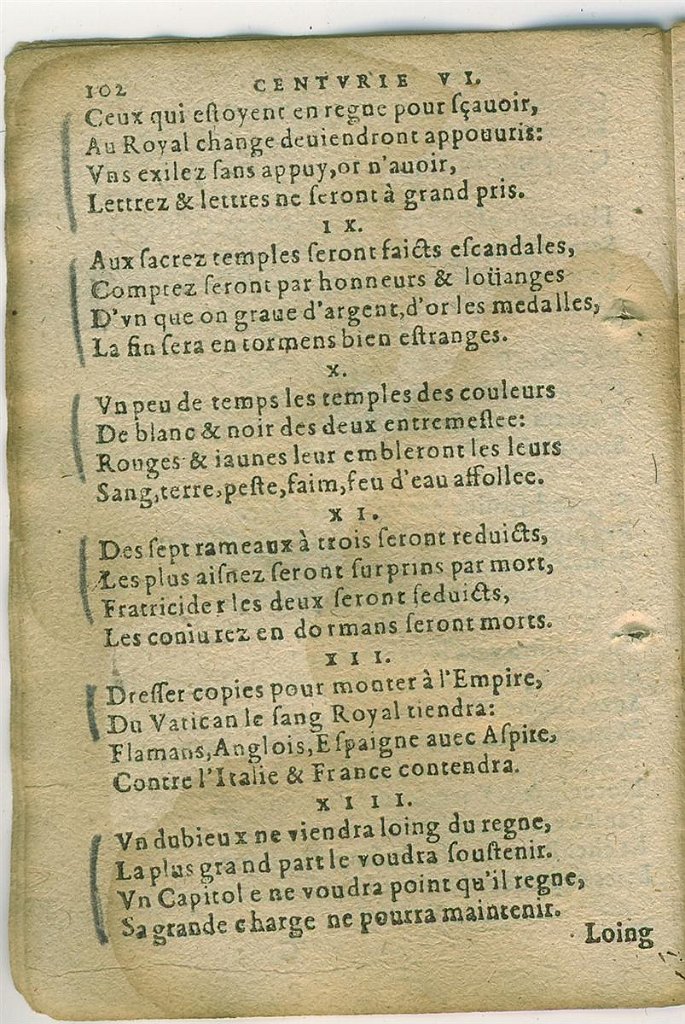 102 CENTVRIE VI.
Ceux qui eſtoyent en regne pour ſçauoir,
Au Royal change deuiendront appouuris:
Vns exilez ſans appuy,or n'auoir,
Lettrez & lettres ne ſeront à grand pris.
IX.
Aux ſacrez temples ſeront faicts eſcandales,
Comptez ſeront par honneurs & loüanges
D'vn que on graue d'argent,d'or les medalles,
La fin ſera en tormens bien eſtranges.
X.
Vn peu de temps les temples des couleurs
De blanc & noir des deux entremeſlee:
Rouges & iaunes leur embleront les leurs
Sang,terre,peſte,faim,feu d'eau affollee.
XI.
Des ſept rameaux à trois ſeront reduicts,
Les plus aiſnez ſeront ſurprins par mort,
Fratricider les deux ſeront ſeduicts,
Les coniurez en dormans ſeront morts.
XII.
Dreſſer copies pour monter à l'Empire,
Du Vatican le ſang Royal tiendra:
Flamans,Anglois,Eſpaigne auec Aſpire,
Contre l'Italie & France contendra.
XIII.
Vn dubieux ne viendra loing du regne,
La plus grand part le voudra ſouſtenir.
Vn Capitole ne voudra point qu'il regne,
Sa grande charge ne pourra maintenir.
Loing